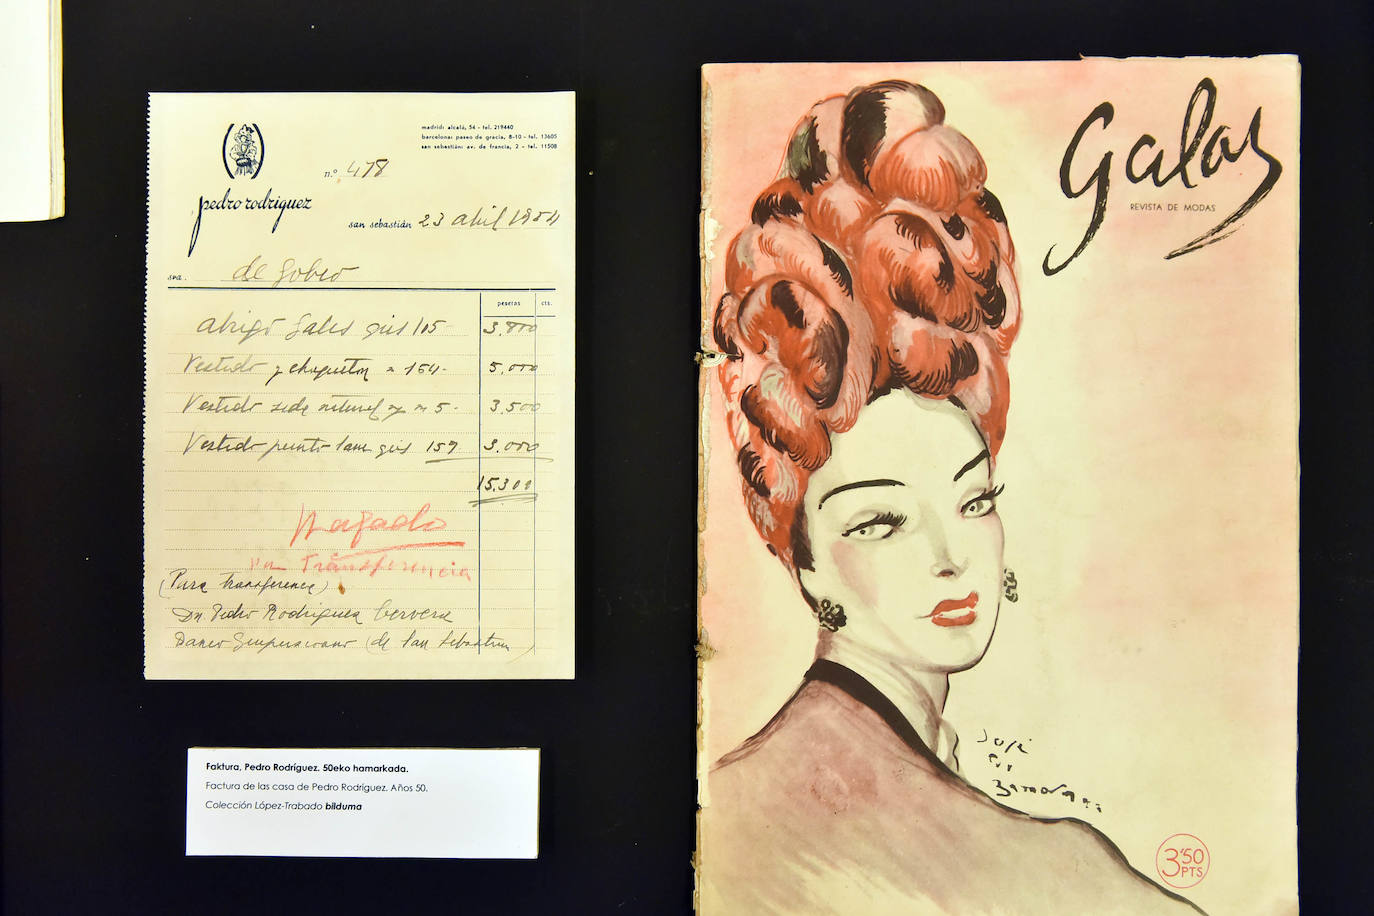 madrid: alcalá, 54 - tel. 219440
barcelona: paseo de gracia, 8-10 - tel. 13605
san sebastián: av. de francia, 2 - tel. 11508
n.º 478
pedro rodríguez
san sebastián 23 abril 1954
sra. de
pesetas cts.
abrigo gales gris 105 3.800
Vestido y chaqueton " 154 - 5.000
Vestido seda natural 5 - 3.500
Vestido punto lana gris 159 3.000
15.300
Pagado
por Transferencia
(Para transferencia)
Dn. Pedro Rodriguez Cervera
Banco (de San Sebastian)
Faktura, Pedro Rodríguez. 50eko hamarkada.
Factura de las casa de Pedro Rodríguez. Años 50.
Colección López-Trabado bilduma
Galas
REVISTA DE MODAS
José
3'50
PTS